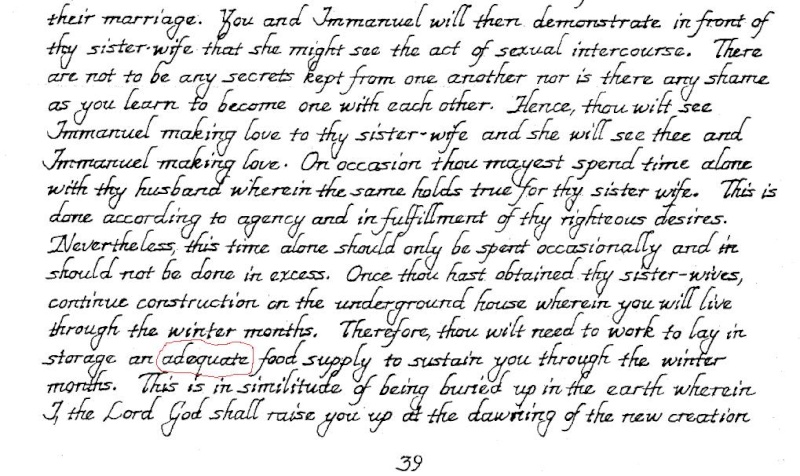 their marriage. You and Immanuel will then demonstrate in front of
thy sister-wife that she might see the act of sexual intercourse. There
are not to be any secrets kept from one another nor is there any shame
as you learn to become one with each other. Hence, thou wilt see
Immanuel making love to thy sister-wife and she will see thee and
Immanuel making love. On occasion thou mayest spend time alone
with thy husband wherein the same holds true for thy sister wife. This is
done according to agency and in fulfillment of thy righteous desires.
Nevertheless, this time alone should only be spent occasionally and in
should not be done in excess. Once thou hast obtained thy sister-wives,
continue construction on the underground house wherein you will live
through the winter months. Therefore, thou wilt need to work to lay in
storage an adequate food supply to sustain you through the winter
months. This is in similitude of being buried up in the earth wherein
I, the Lord God shall raise you up at the dawning of the new creation
39